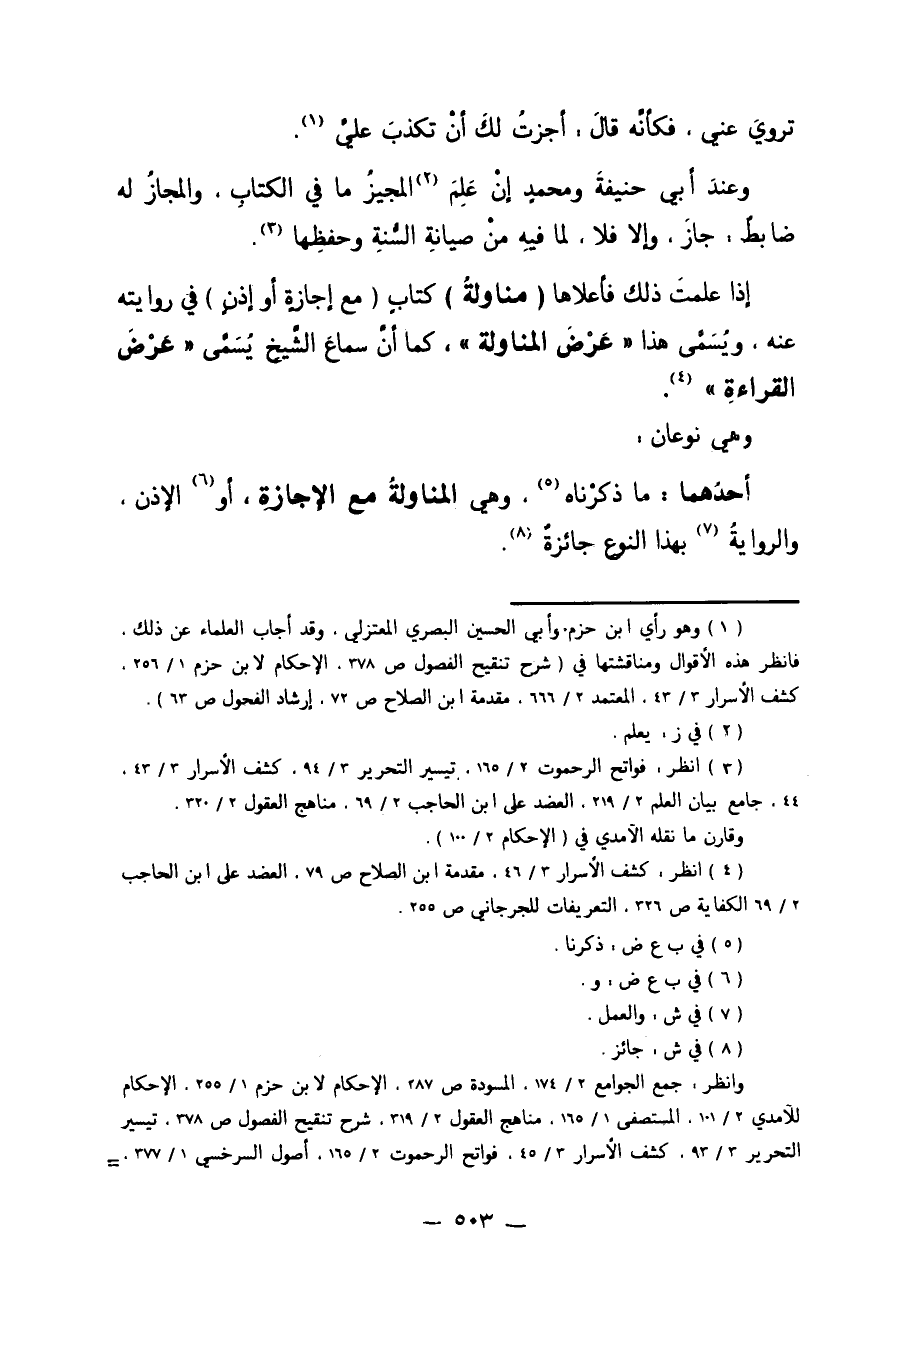 ترويَ عني ، فكأنَّه قالَ : أجزتُ لكَ أنْ تكذبَ عليَّ (١).
وعندَ أبي حنيفةَ ومحمدٍ إنْ عَلِمَ (٢) المجيزُ ما في الكتابِ ، والمجازُ له
ضابطٌ : جازَ ، وإلا فلا ، لما فيهِ منْ صيانةِ السُّنةِ وحفظِها (٣).
إذا علمتَ ذلك فأعلاها ( مناولةُ ) كتابٍ ( مع إجازةٍ أو إذنٍ ) في روايته
عنه ، ويُسَمَّى هذا « عَرْضَ المناولة » ، كما أنَّ سماعَ الشَّيخِ يُسَمَّى « عَرْضَ
القراءةِ » (٤).
وهي نوعان :
أحدُهما : ما ذكرْناه (٥) ، وهي المناولةُ مع الإجازةِ ، أو (٦) الإذن ،
والروايةُ (٧) بهذا النوع جائزةٌ (٨).
( ١ ) وهو رأي ابن حزم وأبي الحسين البصري المعتزلي ، وقد أجاب العلماء عن ذلك ،
فانظر هذه الأقوال ومناقشتها في ( شرح تنقيح الفصول ص ٣٧٨ ، الإحكام لابن حزم ١ / ٢٥٦ ،
كشف الأسرار ٣ / ٤٣ ، المعتمد ٢ / ٦٦٦ ، مقدمة ابن الصلاح ص ٧٢ ، إرشاد الفحول ص ٦٣ ) .
( ٢ ) في ز : يعلم .
( ٣ ) انظر : فواتح الرحموت ٢ / ١٦٥ ، تيسير التحرير ٣ / ٩٤ ، كشف الأسرار ٣ / ٤٣ ،
٤٤ ، جامع بيان العلم ٢ / ٢١٩ ، العضد على ابن الحاجب ٢ / ٦٩ ، مناهج العقول ٢ / ٣٢٠ .
وقارن ما نقله الآمدي في ( الإحكام ٢ / ١٠٠ ) .
( ٤ ) انظر : كشف الأسرار ٣ / ٤٦ ، مقدمة ابن الصلاح ص ٧٩ ، العضد على ابن الحاجب
٢ / ٦٩ الكفاية ص ٣٢٦ ، التعريفات للجرجاني ص ٢٥٥ .
( ٥ ) في ب ع ض : ذكرنا .
( ٦ ) في ب ع ض : و .
( ٧ ) في ش : والعمل .
( ٨ ) في ش : جائز .
وانظر : جمع الجوامع ٢ / ١٧٤ ، المسودة ص ٢٨٧ ، الإحكام لابن حزم ١ / ٢٥٥ ، الإحكام
للآمدي ٢ / ١٠١ ، المستصفى ١ / ١٦٥ ، مناهج العقول ٢ / ٣١٩ ، شرح تنقيح الفصول ص ٣٧٨ ، تيسير
التحرير ٣ / ٩٣ ، كشف الأسرار ٣ / ٤٥ ، فواتح الرحموت ٢ / ١٦٥ ، أصول السرخسي ١ / ٣٧٧ ، =
— ٥٠٣ —